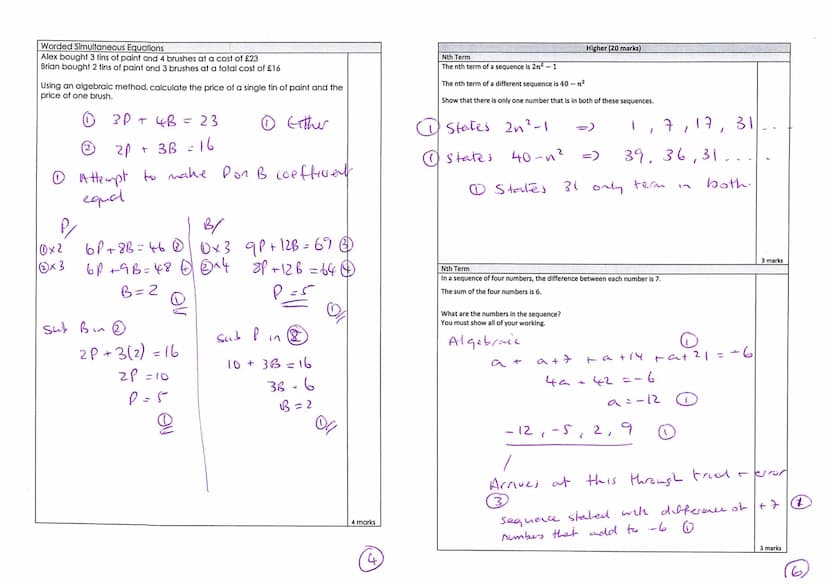 Worded Simultaneous Equations
Alex bought 3 tins of paint and 4 brushes at a cost of £23
Brian bought 2 tins of paint and 3 brushes at a total cost of £16
Using an algebraic method, calculate the price of a single tin of paint and the
price of one brush.
① 3P + 4B = 23 ① Either
② 2P + 3B = 16
① Attempt to make P or B coefficient
equal
P/
①x2 6P+8B=46 ②
②x3 6P+9B=48
B=2 ①
Sub B in ②
2P+3(2)=16
2P=10
P=5
①
B/
①x3 9P+12B=69 ③
②x4 8P+12B=64 ④
P=5
①
Sub P in ②
10+3B=16
3B=6
B=2
①
4 marks
④
Higher (20 marks)
Nth Term
The nth term of a sequence is 2n² − 1
The nth term of a different sequence is 40 − n²
Show that there is only one number that is in both of these sequences.
① States 2n²-1 => 1, 7, 17, 31 ...
① States 40-n² => 39, 36, 31 ....
① States 31 only term in both.
3 marks
Nth Term
In a sequence of four numbers, the difference between each number is 7.
The sum of the four numbers is 6.
What are the numbers in the sequence?
You must show all of your working.
Algebraic ①
a + a+7 + a+14 + a+21 = -6
4a + 42 = -6
a = -12 ①
-12, -5, 2, 9 ①
Arrives at this through trial + error
③
sequence stated with difference of +7
numbers that add to -6 ①
3 marks
⑥